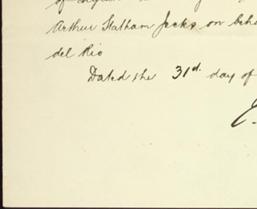 Arthur Statham Jecks on beha
del Rio
Dated the 31st day of
E.